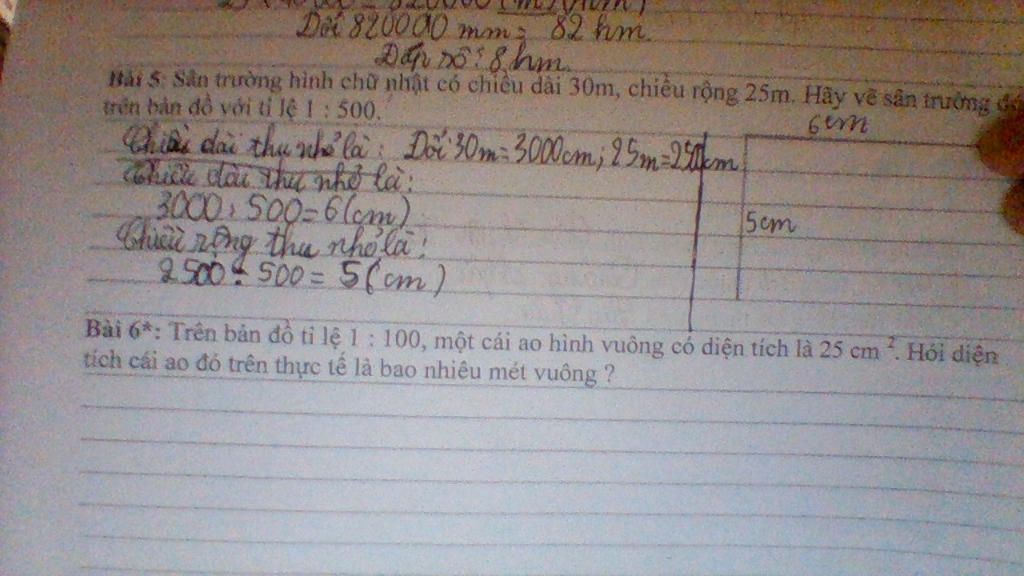 Đổi 820000 mm = 82 hm.
Đáp số: 8 hm.
Bài 5: Sân trường hình chữ nhật có chiều dài 30m, chiều rộng 25m. Hãy vẽ sân trường
trên bản đồ với tỉ lệ 1 : 500.
6cm
Chiều dài thu nhỏ là: Đổi 30m = 3000cm; 25m = 2500cm
Chiều dài thu nhỏ là:
3000 : 500 = 6 (cm)
5cm
Chiều rộng thu nhỏ là:
2500 : 500 = 5 (cm)
Bài 6*: Trên bản đồ tỉ lệ 1 : 100, một cái ao hình vuông có diện tích là 25 cm². Hỏi diện
tích cái ao đó trên thực tế là bao nhiêu mét vuông ?